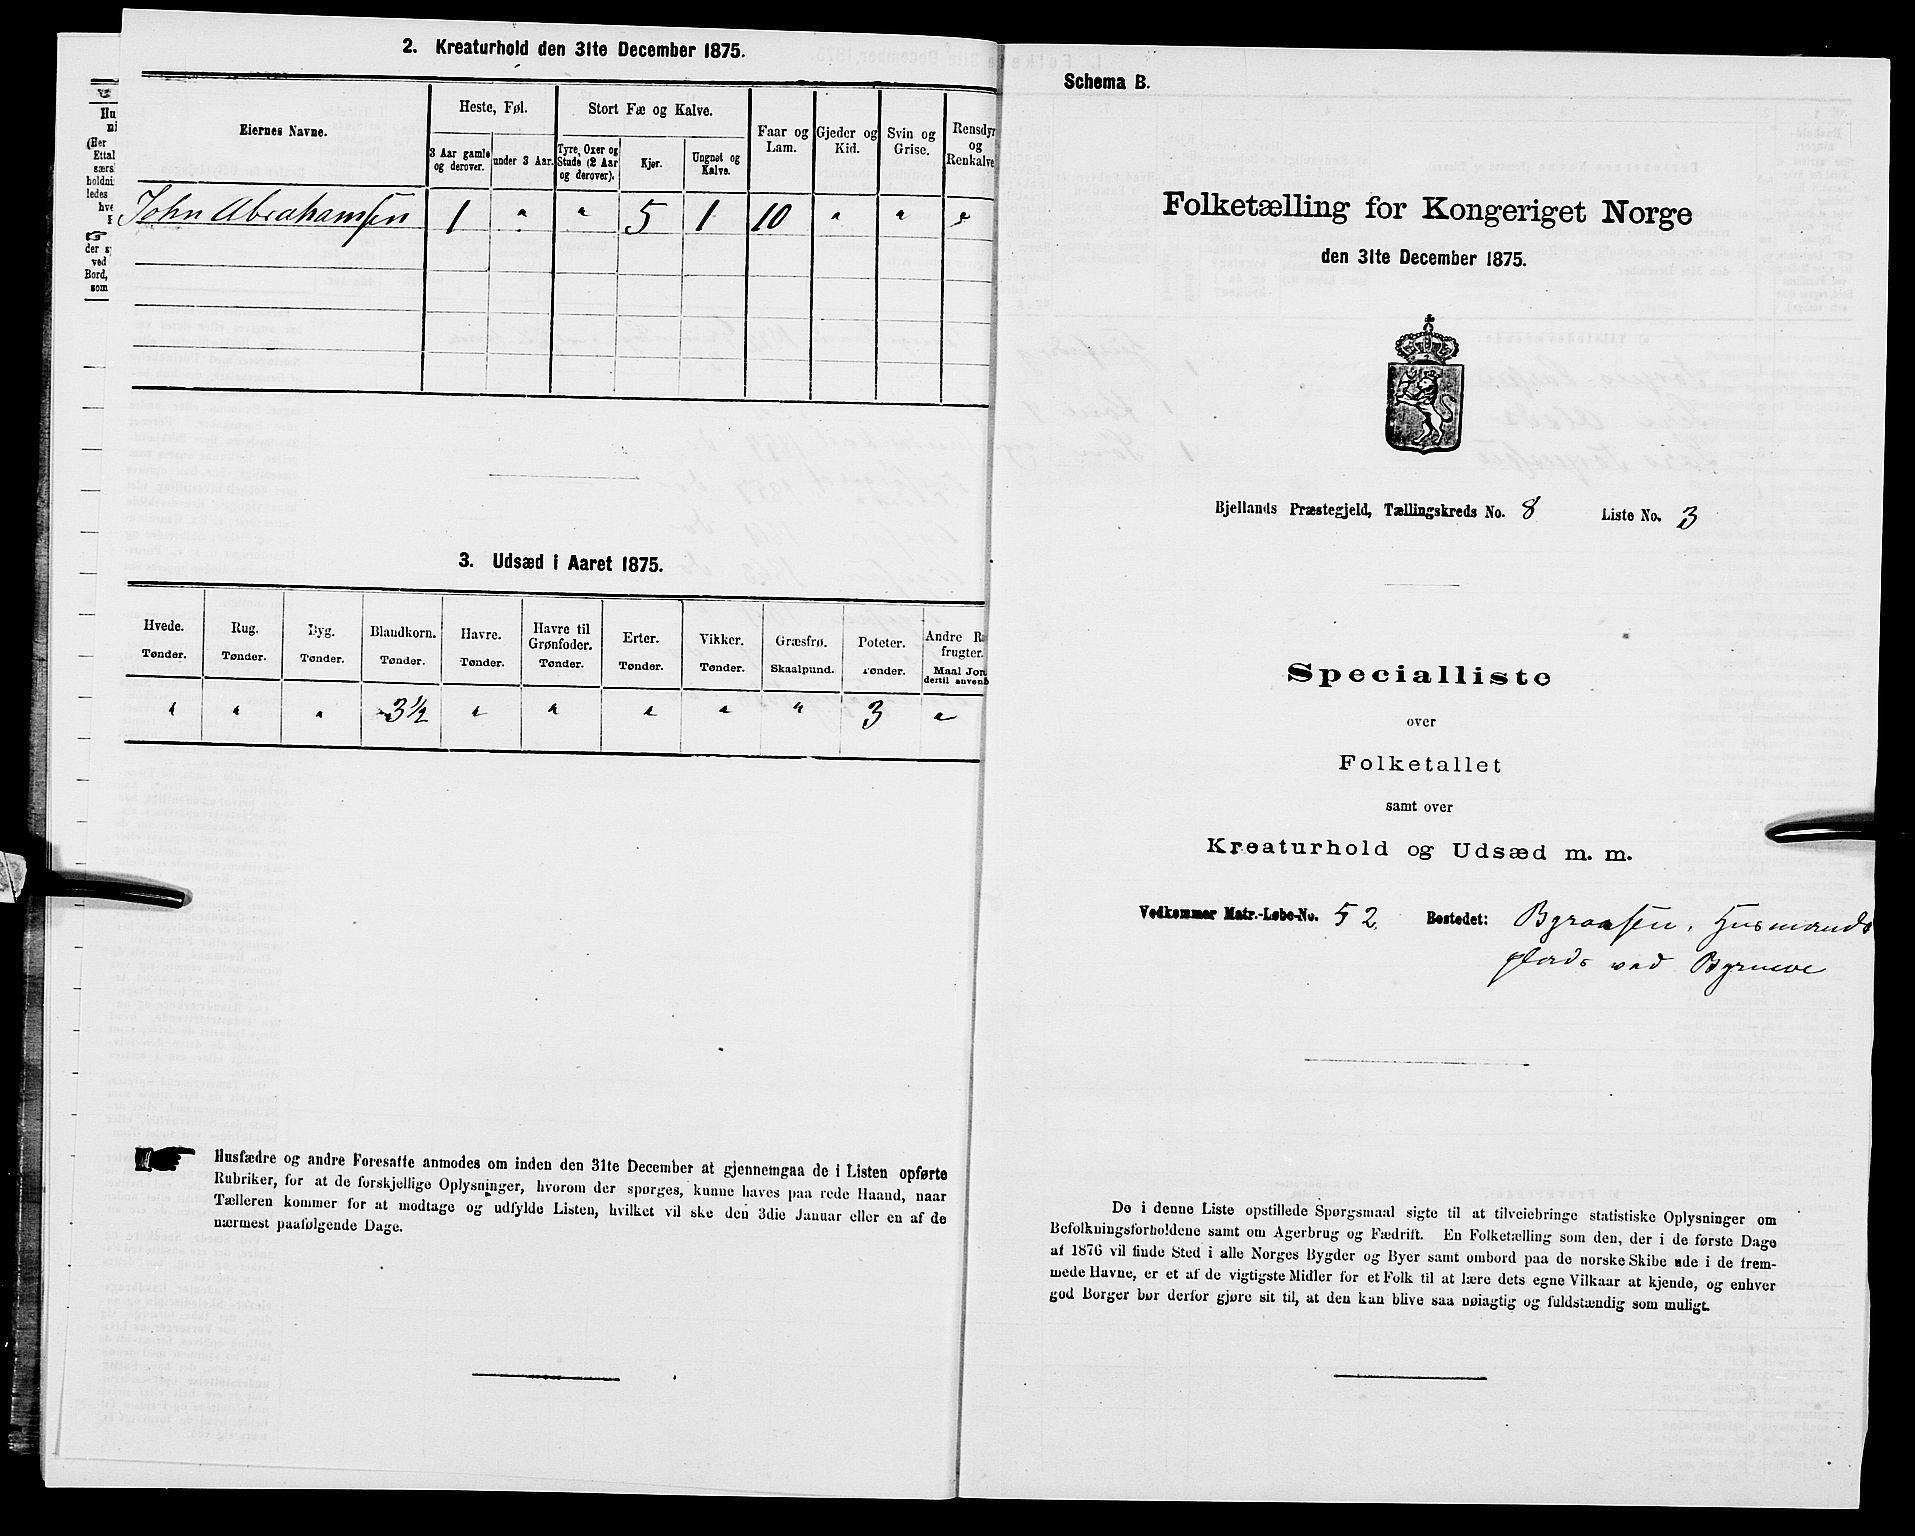 2. Kreaturhold den 31te December 1875.
Eiernes Navne.
Heste, Føl.
Stort Fæ og Kalve.
Faar og Lam.
Gjeder og Kid.
Svin og Grise.
Rensdyr og Renkalve
3 Aar gamle og derover.
under 3 Aar.
Tyre, Oxer og Stude (2 Aar og derover).
Kjør.
Ungnøt og Kalve.
John Abrahamsen 1 " " 5 1 10 " " "
3. Udsæd i Aaret 1875.
Hvede. Rug. Byg. Blandkorn. Havre. Havre til Grønfoder. Erter. Vikker. Græsfrø. Poteter. Andre R
frugter.
Tønder. Tønder. Tønder. Tønder. Tønder. Tønder. Tønder. Tønder. Skaalpund. Tønder. Maal Jor
dertil anvend
" " " 3½ " " " " " 3 "
Husfædre og andre Foresatte anmodes om inden den 31te December at gjennemgaa de i Listen opførte
Rubriker, for at de forskjellige Oplysninger, hvorom der spørges, kunne haves paa rede Haand, naar
Tælleren kommer for at modtage og udfylde Listen, hvilket vil ske den 3die Januar eller en af de
nærmest paafølgende Dage.
Schema B.
Folketælling for Kongeriget Norge
den 31te December 1875.
Bjellands Præstegjeld, Tællingskreds No. 8 Liste No. 3
Specialliste
over
Folketallet
samt over
Kreaturhold og Udsæd m. m.
Vedkommer Matr.-Løbe-No. 52. Bostedet: Byraasen, Husmands
plads ved Byrueve
De i denne Liste opstillede Spørgsmaal sigte til at tilveiebringe statistiske Oplysninger om
Befolkningsforholdene samt om Agerbrug og Fædrift. En Folketælling som den, der i de første Dage
af 1876 vil finde Sted i alle Norges Bygder og Byer samt ombord paa de norske Skibe ude i de frem-
mede Havne, er et af de vigtigste Midler for et Folk til at lære dets egne Vilkaar at kjende, og enhver
god Borger bør derfor gjøre sit til, at den kan blive saa nøiagtig og fuldstændig som muligt.